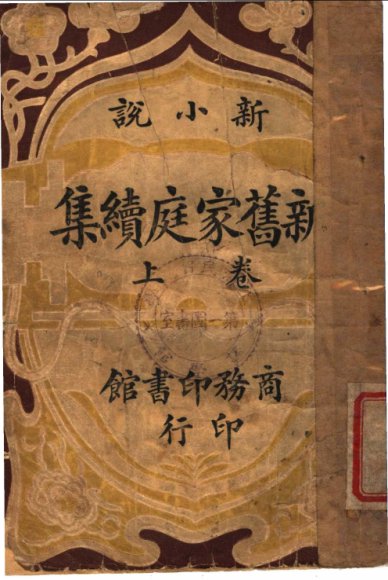 新小說
新舊家庭續集
卷上
商務印書館
印行